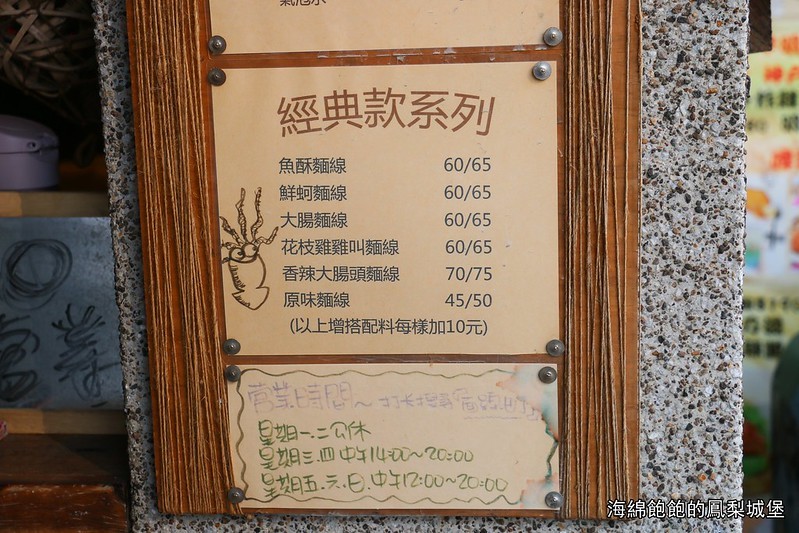 氣泡水
經典款系列
魚酥麵線 60/65
鮮蚵麵線 60/65
大腸麵線 60/65
花枝雞雞叫麵線 60/65
香辣大腸頭麵線 70/75
原味麵線 45/50
(以上增搭配料每樣加10元)
營業時間~
星期一.二公休
星期三.四 中午14:00~20:00
星期五.六.日.中午12:00~20:00
海綿飽飽的鳳梨城堡